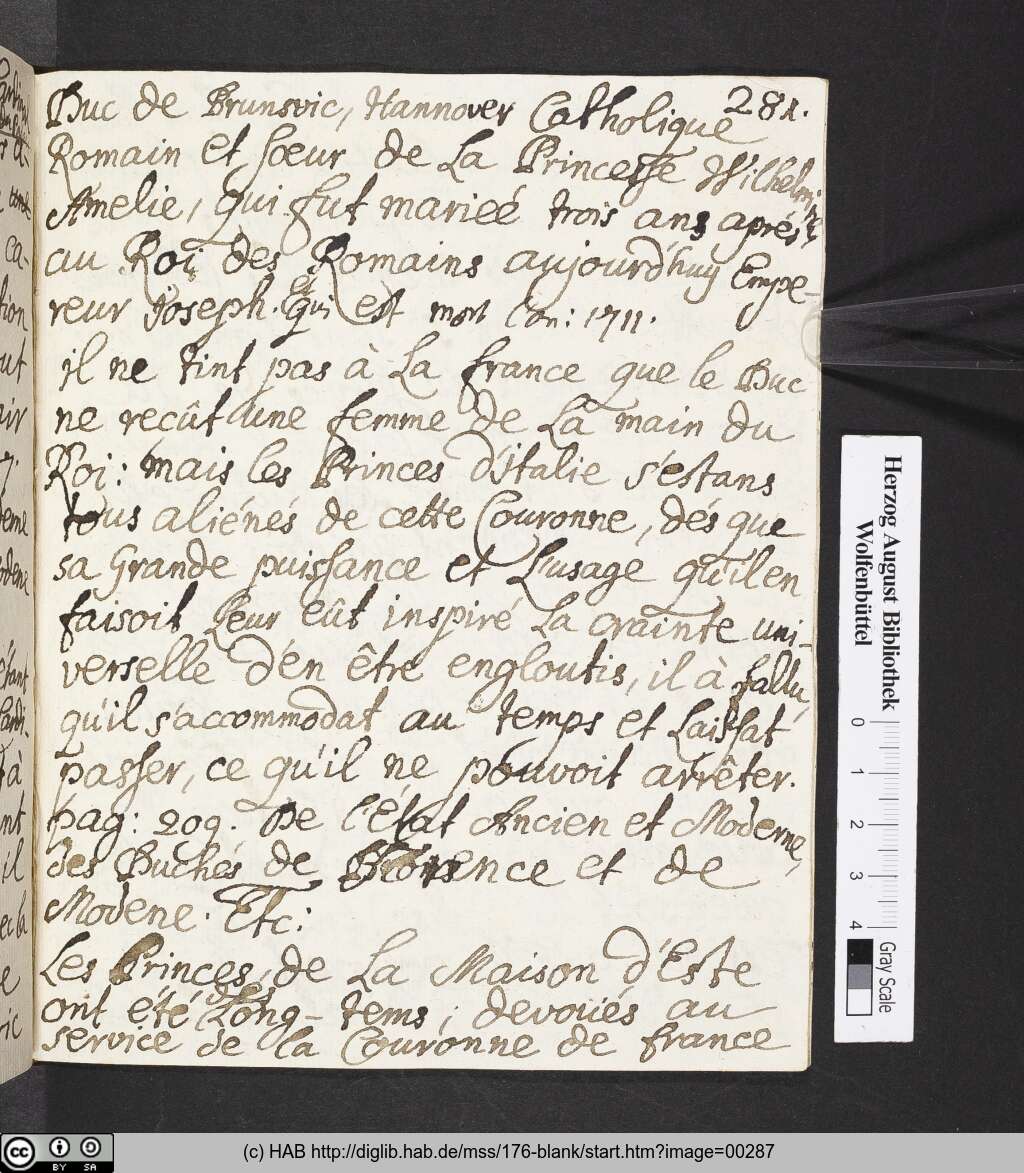 281.
Duc de Brunsvic, Hannover Catholique
Romain et soeur de La Princesse Wilhelmine
Amelie, qui fut marieé trois ans aprés
au Roi des Romains aujourd'huy Empe-
reur Joseph. et qui est mort l'an: 1711.
il ne tint pas à La france que le Duc
ne reçût une femme de La main du
Roi: mais les Princes d'Italie s'estans
tous aliénés de cette Couronne, dés que
sa Grande puissance et L'usage qu'il en
faisoit Leur eût inspiré La crainte uni-
verselle d'en être engloutis, il à fallu,
qu'il s'accommodat au temps et Laissat
passer, ce qu'il ne pouvoit arrêter.
pag: 209. De l'état Ancien et Moderne,
des Duchés de Florence et de
Modene. Etc:
Les Princes, de La Maison d'Este
ont été Long-tems, devoüés au
service de la Couronne de france
Herzog August Bibliothek
Wolfenbüttel
0 1 2 3 4
Gray Scale
cc BY SA
(c) HAB http://diglib.hab.de/mss/176-blank/start.htm?image=00287